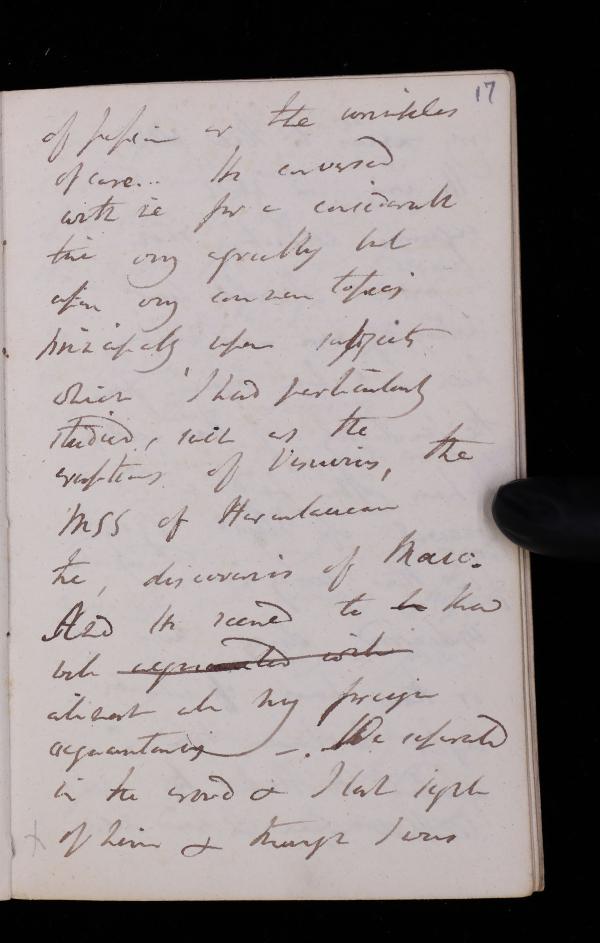 17
of passion or the wrinkles
of care... He conversed
with me for a considerable
time very agreeably but
upon very common topics
principally upon subjects
which I had particularly
studied, such as the
eruptions of Vesuvius, the
MSS of Herculaneum
the, discoveries of
And He seemed to be know
well acquainted with
almost all my foreign
acquaintances –. We separated
in the crowd & I lost sight
of him & though I was